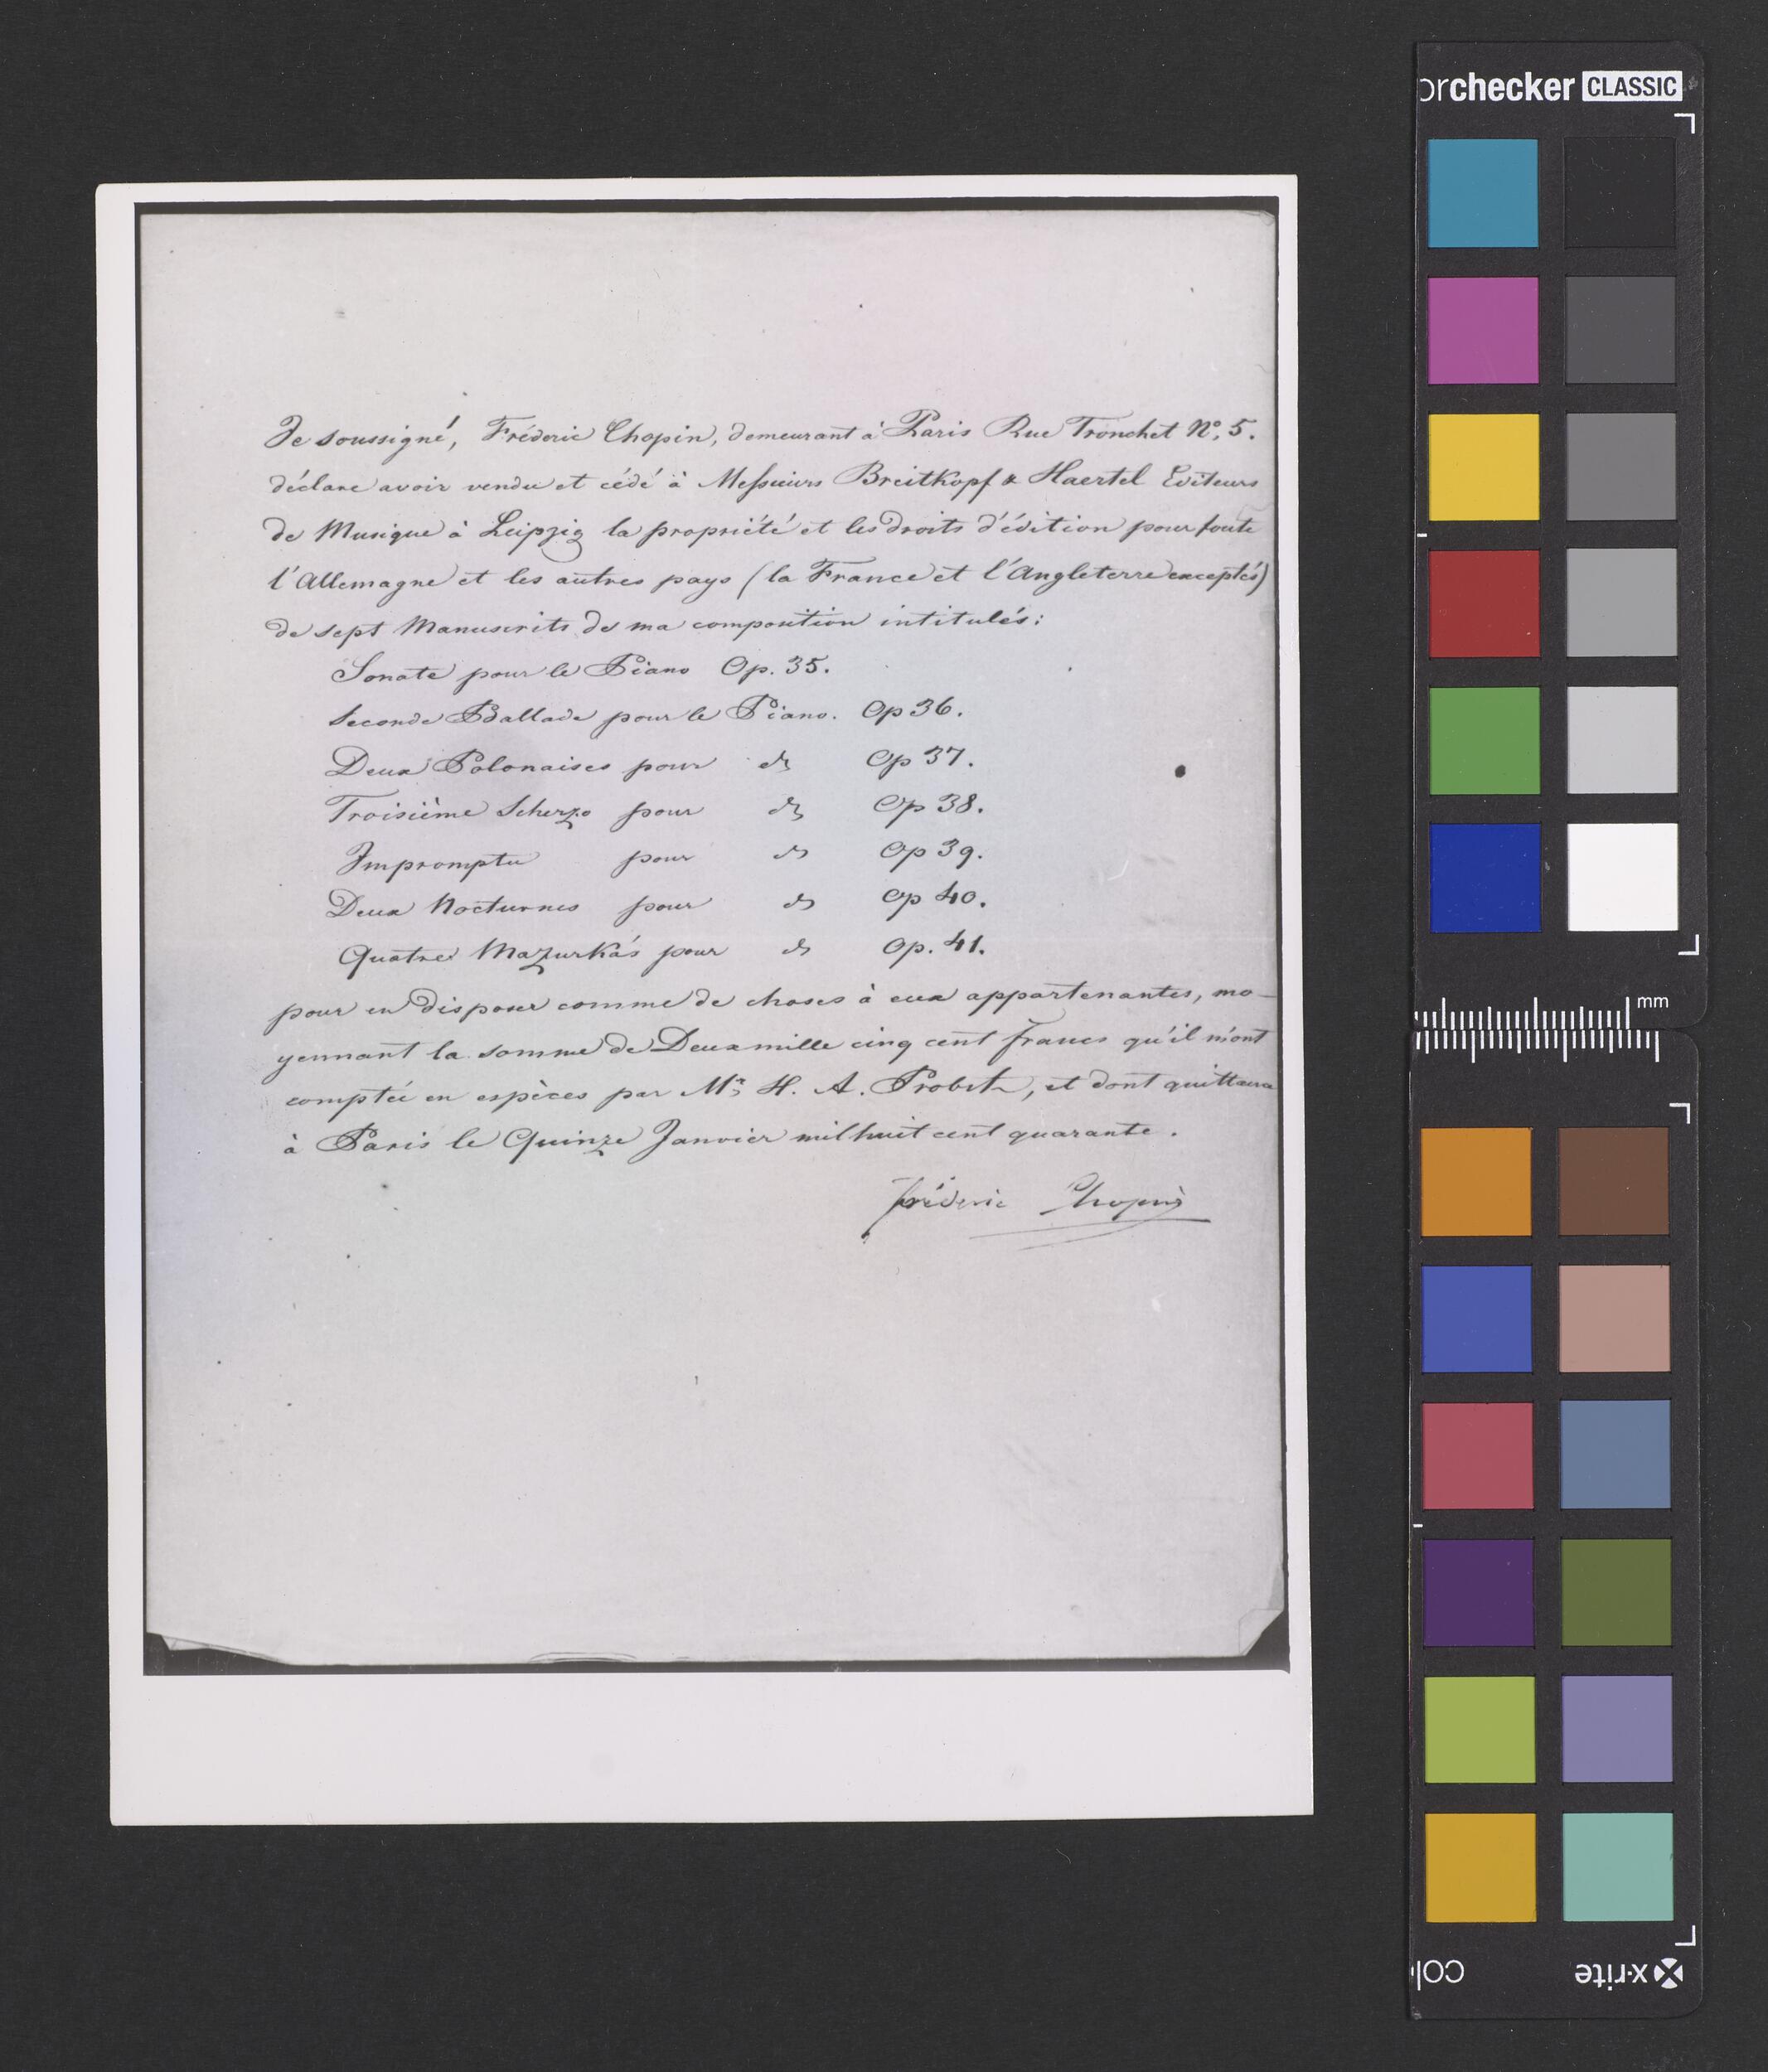 Je soussigné, Fréderic Chopin, demeurant à Paris Rue Tronchet Nº. 5.
déclare avoir vendu et cédé à Messieurs Breitkopf & Haertel Editeurs
de Musique à Leipzig la propriété et les droits d'édition pour toute
l'Allemagne et les autres pays (la France et l'Angleterre exceptés)
de sept Manuscrits de ma composition intitulés:
Sonate pour le Piano Op. 35.
Seconde Ballade pour le Piano. Op 36.
Deux Polonaises pour do Op 37.
Troisième Scherzo pour do Op 38.
Impromptu pour do Op 39.
Deux Nocturnes pour do Op 40.
Quatre Mazurkás pour do Op. 41.
pour en disposer comme de choses à eux appartenantes, mo-
yennant la somme de Deux mille cinq cent francs qu'il m'ont
comptée en espèces par Mr. H. A. Probst, et dont quittance
à Paris le Quinze Janvier mil huit cent quarante.
Fréderic Chopin
orchecker CLASSIC
mm
col
x-rite